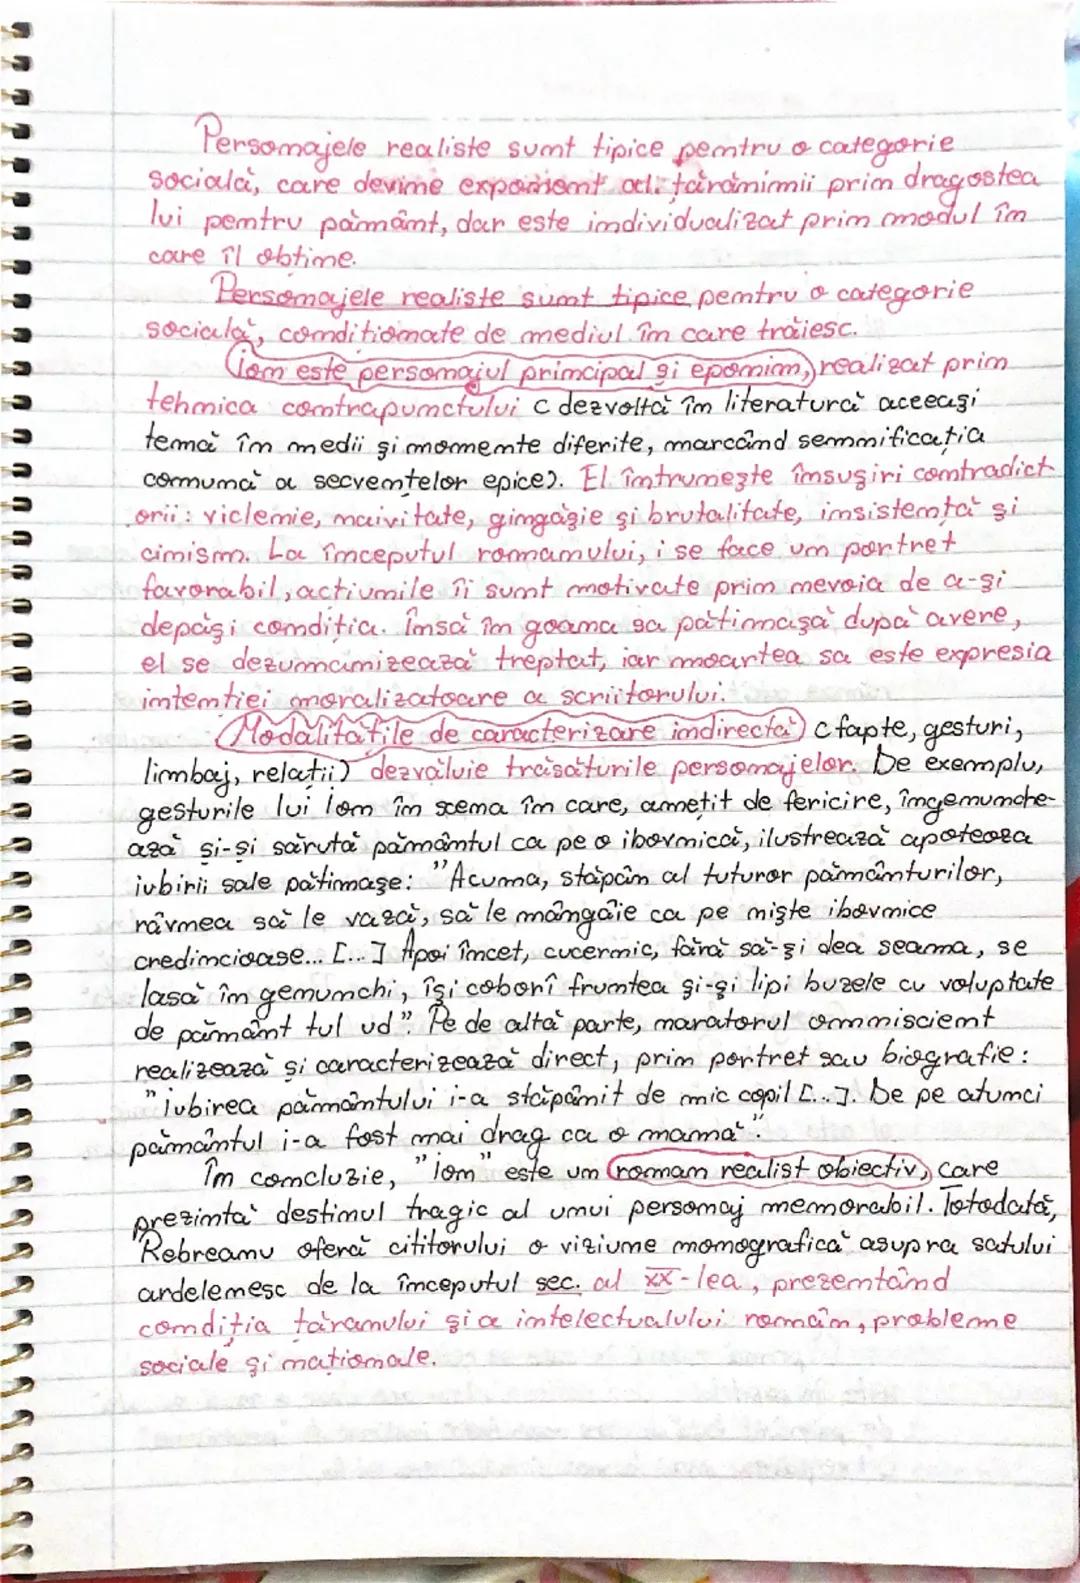 Personajele realiste sunt tipice pentru o categorie
socială, care devine exponent al țărănimii prin dragostea
lui pentru pământ, dar este individualizat prin modul în
care îl obține.
Personajele realiste sunt tipice pentru o categorie
socială, condiționate de mediul în care trăiesc.
Ion este personajul principal și eponim, realizat prin
tehnica contrapunctului (dezvoltă în literatură aceeași
temă în medii și momente diferite, marcând semnificația
comună a secvențelor epice). El întrunește însușiri contradict
orii: viclenie, naivitate, gingășie și brutalitate, insistență și
cinism. La începutul romanului, i se face un portret
favorabil, acțiunile îi sunt motivate prin nevoia de a-și
depăși condiția. Însă în goana sa pătimașă după avere,
el se dezumanizează treptat, iar moartea sa este expresia
intenției moralizatoare a scriitorului.
Modalitățile de caracterizare indirectă (fapte, gesturi,
limbaj, relații) dezvăluie trăsăturile personajelor. De exemplu,
gesturile lui Ion în scena în care, amețit de fericire, îngenunche-
ază și-și sărută pământul ca pe o ibovnică, ilustrează apoteoza
iubirii sale pătimașe: "Acuma, stăpân al tuturor pământurilor,
râvnea să le vază, să le mângâie ca pe niște ibovnice
credincioase... [...] Apoi încet, cucernic, fără să-și dea seama, se
lasă în genunchi, își coborî fruntea și-și lipi buzele cu voluptate
de pământ tul ud". Pe de altă parte, naratorul omniscient
realizează și caracterizează direct, prin portret sau biografie:
"iubirea pământului i-a stăpânit de mic copil [...]. De pe atunci
pământul i-a fost mai drag ca o mamă".
În concluzie, "Ion" este un roman realist obiectiv, care
prezintă destinul tragic al unui personaj memorabil. Totodată,
Rebreanu oferă cititorului o viziune monografică asupra satului
ardelenesc de la începutul sec. al XX-lea, prezentând
condiția țăranului și a intelectualului român, probleme
sociale și naționale.